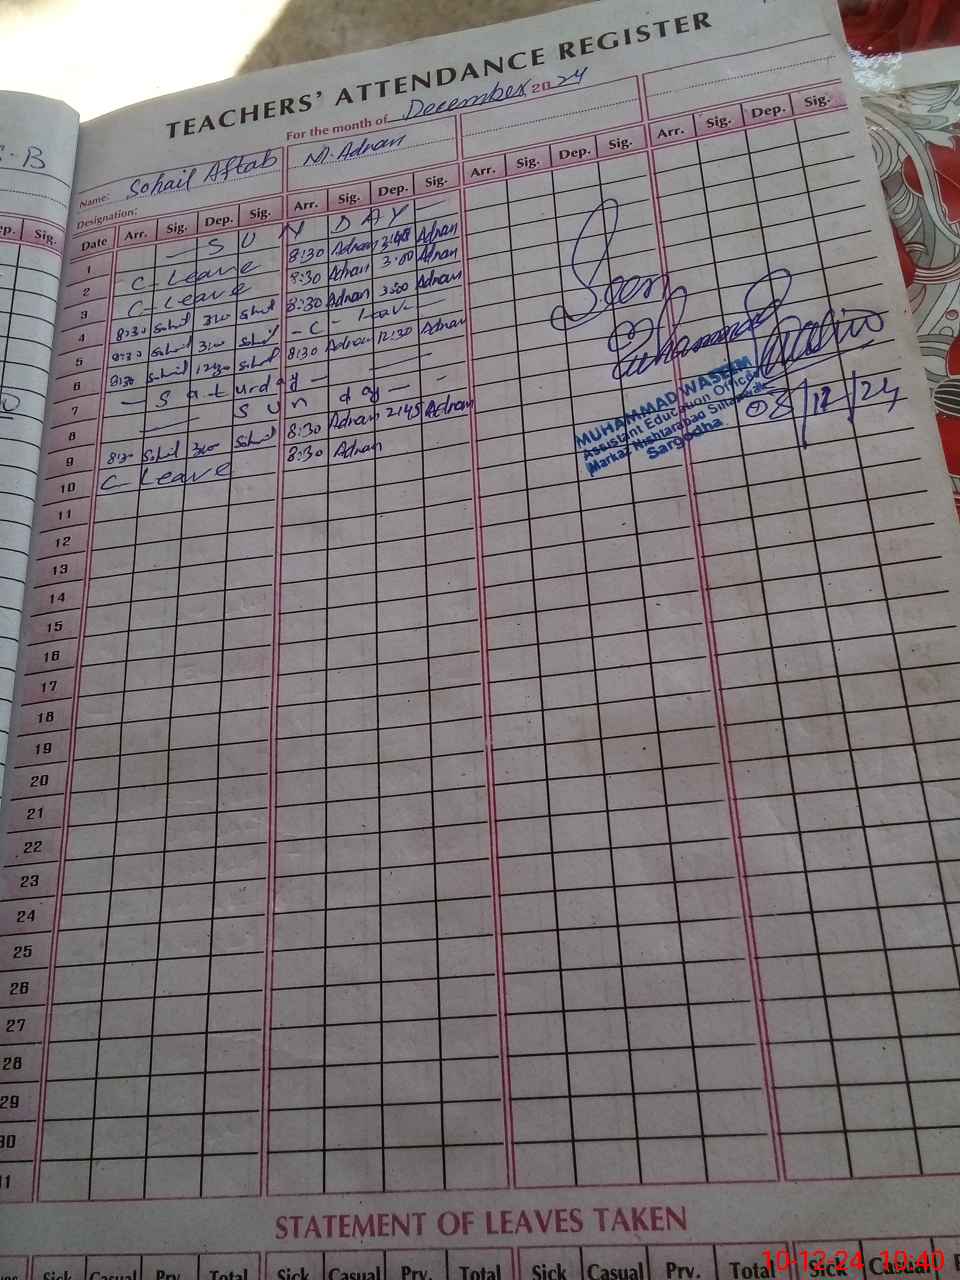 TEACHERS' ATTENDANCE REGISTER
For the month of December 2024
S.B
Name: Sohail Aftab M. Adnan
Designation:
ep. Sig. Date Arr. Sig. Dep. Sig. Arr. Sig. Dep. Sig. Arr. Sig. Dep. Sig. Arr. Sig. Dep. Sig.
1 — S U N D A Y —
2 C - Leave 8:30 Adnan Adnan
3 C - Leave 8:30 Adnan 3:00 Adnan
4 8:30 Sohail 3:00 Sohail 8:30 Adnan 3:00 Adnan
5 8:30 Sohail 3:00 Sohail - C - Leave -
6 8:30 Sohail 12:30 Sohail 8:30 Adnan 12:30 Adnan
7 — Saturday —
8 Sunday —
9 8:30 Sohail 3:00 Sohail 8:30 Adnan 2:45 Adnan
10 C Leave 8:30 Adnan
Seen
Muhammad Wasim
MUHAMMAD WASEEM
Assistant Education Officer
Markaz Nishtarabad Sillanwali
Sargodha
08/12/24
11
12
13
14
15
16
17
18
19
20
21
22
23
24
25
26
27
28
29
30
31
STATEMENT OF LEAVES TAKEN
Sick Casual Prv. Total Sick Casual Prv. Total Sick Casual Prv. Total Sick Casual
10-12-24 10:40